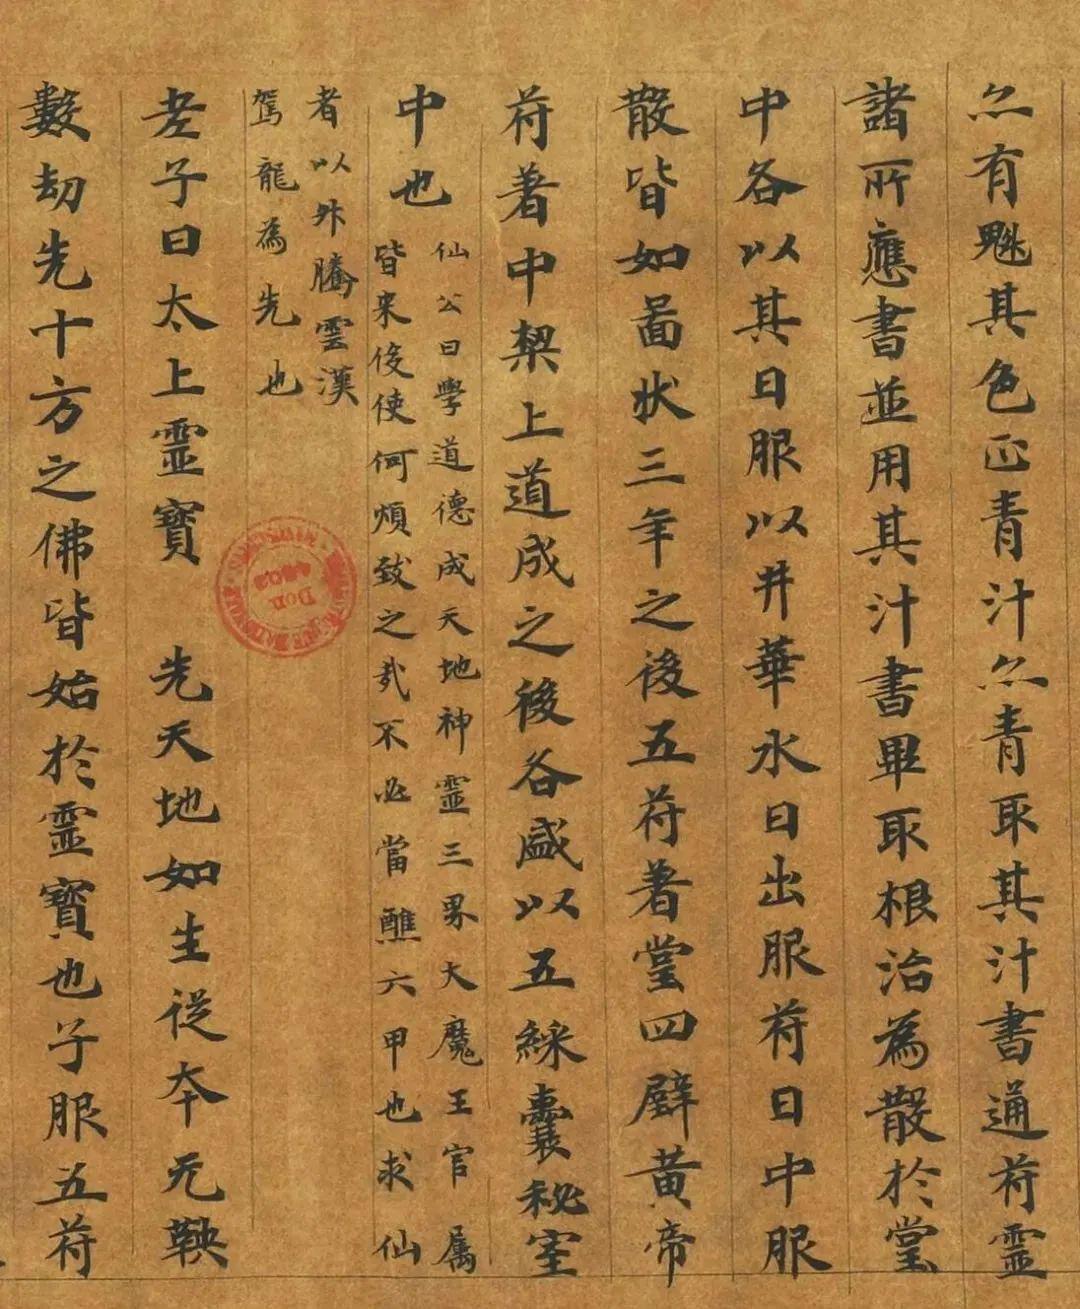 亦有魁其色正青汁亦青取其汁書通符靈
諸所應書並用其汁書畢取根治為散於堂
中各以其日服以井華水日出服符日中服
散皆如啚状三年之後五符著堂四壁黄帝
符著中梁上道成之後各盛以五綵囊秘室
中也
仙公曰學道德成天地神靈三界大魔王官属
皆来侵使何煩致之哉不必當醮六甲也求仙
者以外騰雲漢
駕龍為先也
老子曰太上靈寶 先天地如生從本无鞅
數劫先十方之佛皆始於靈寶也子服五符
Don 4502